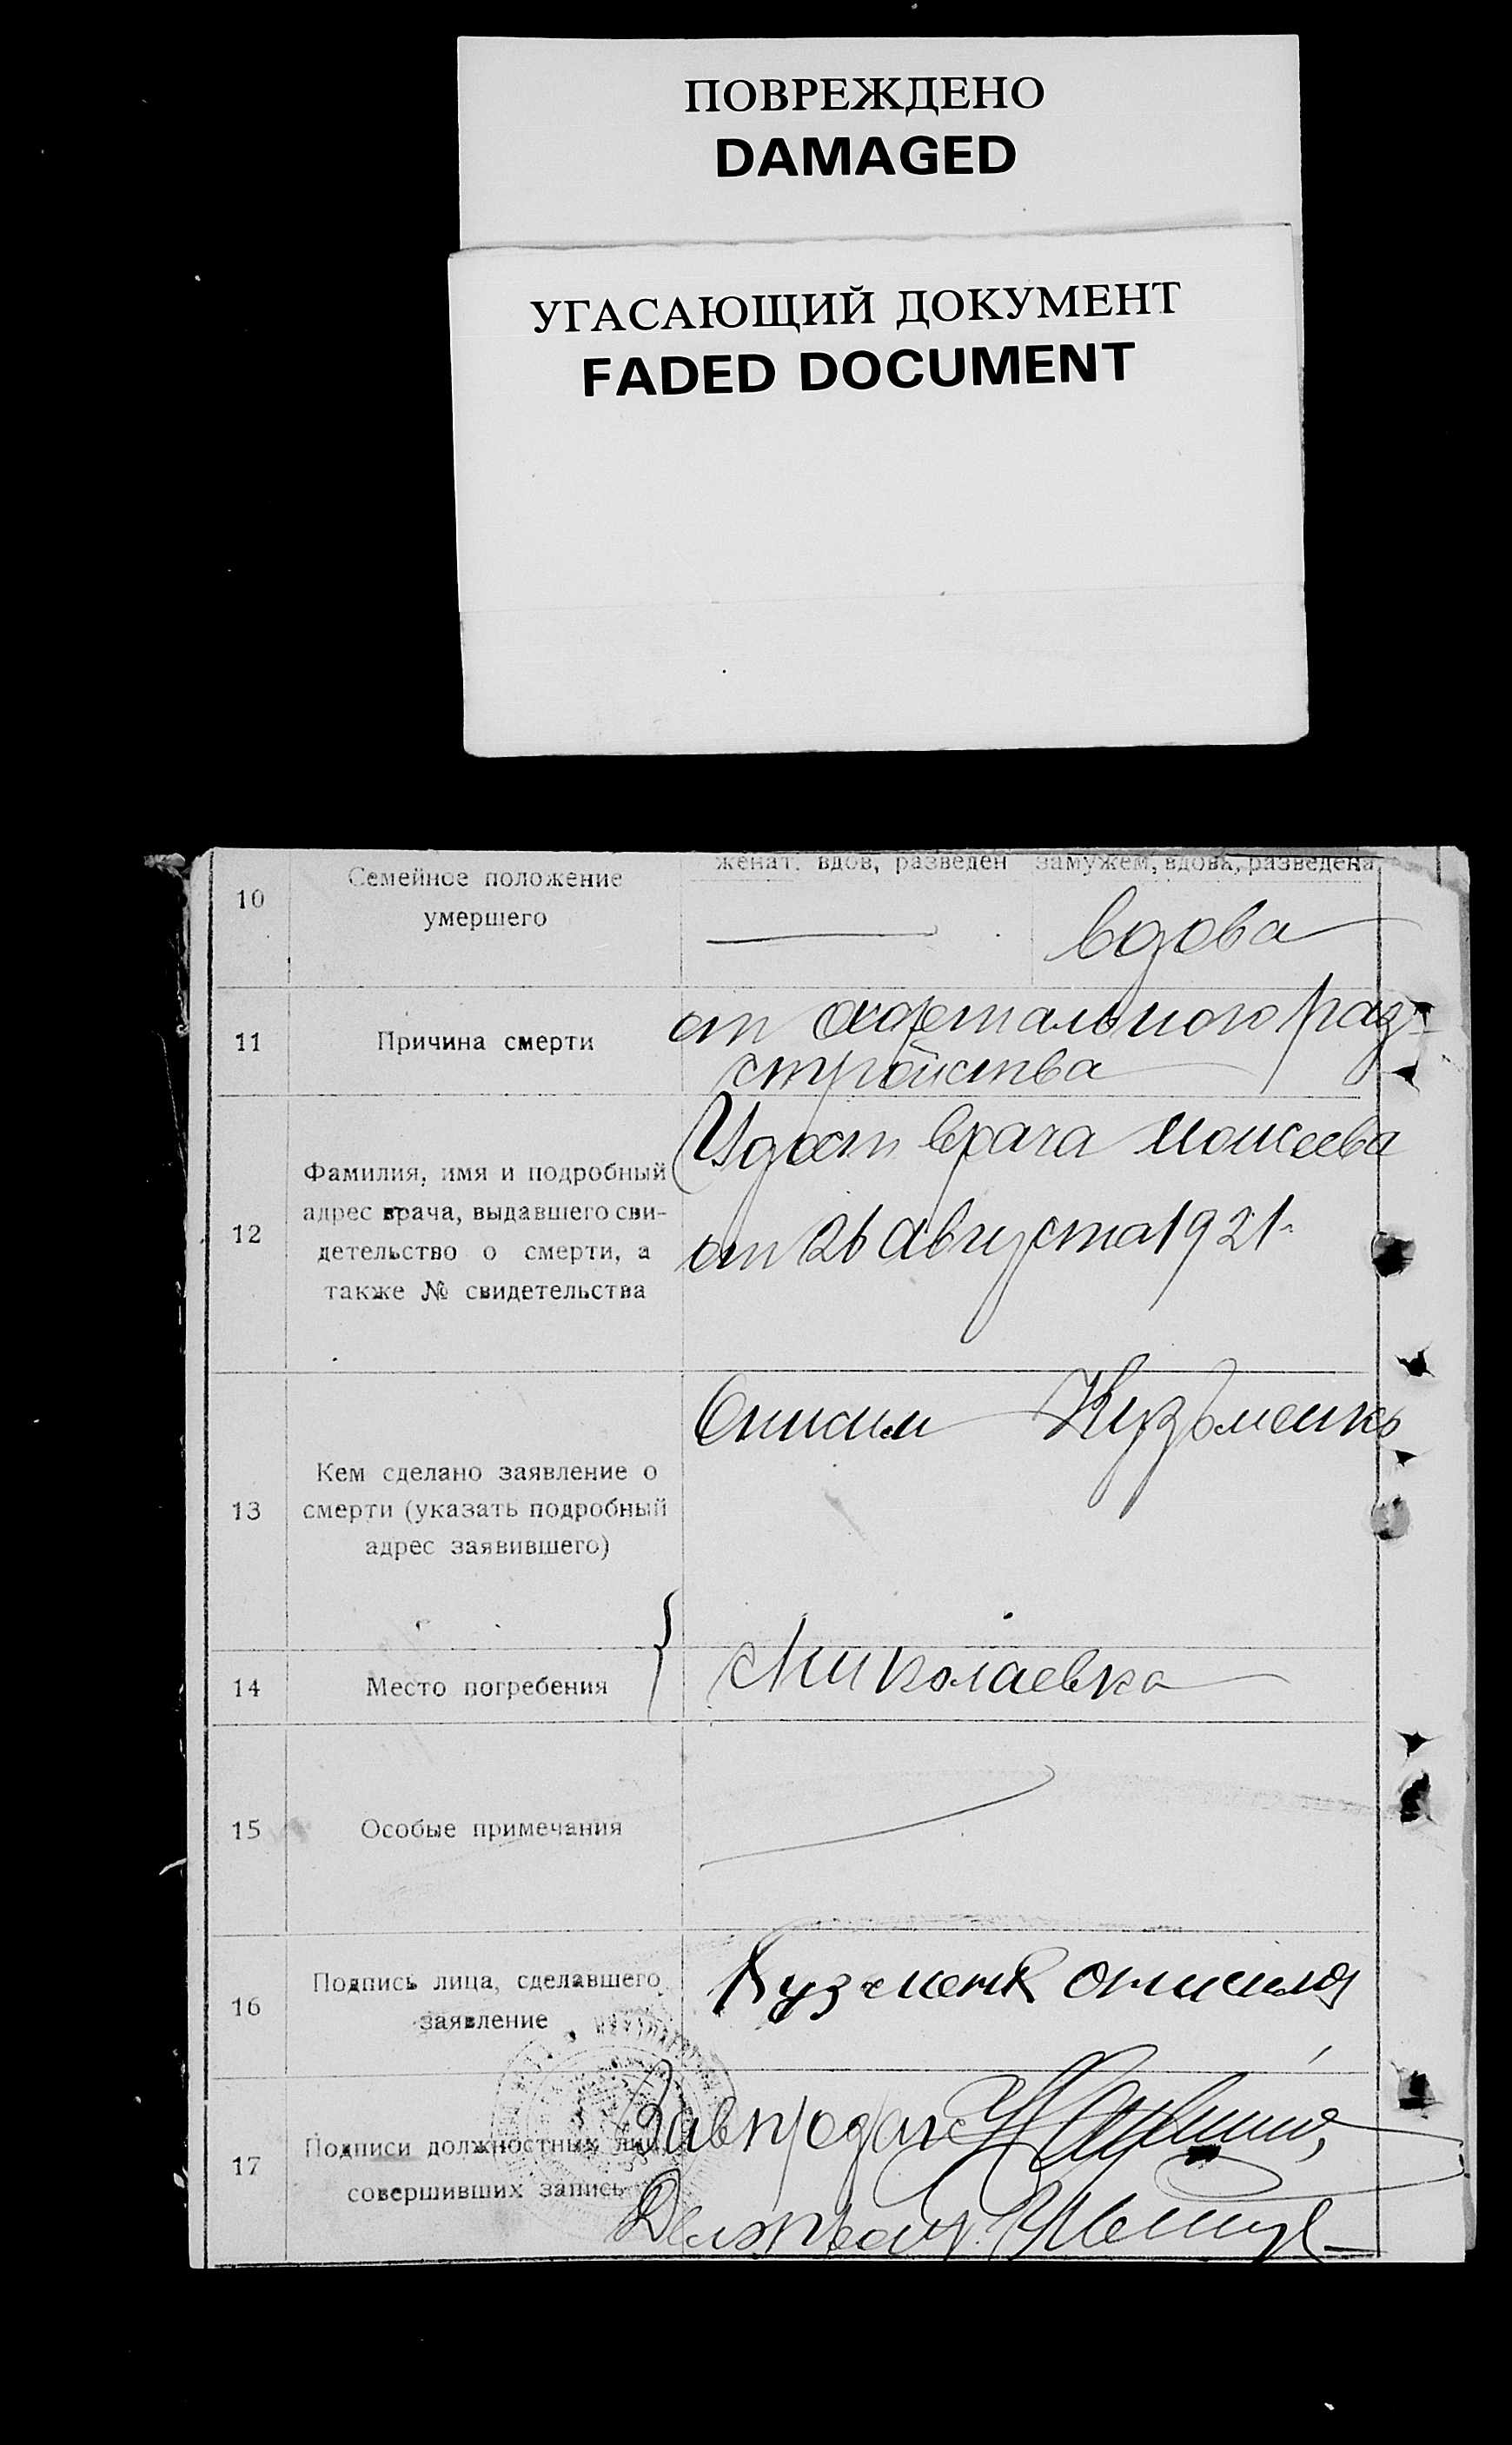 ПОВРЕЖДЕНО
DAMAGED
УГАСАЮЩИЙ ДОКУМЕНТ
FADED DOCUMENT
10
Семейное положение
умершего
женат, вдов, разведен
замужем, вдова, разведена
вдова
11
Причина смерти
от раз-
стройства
12
Фамилия, имя и подробный
адрес врача, выдавшего сви-
детельство о смерти, а
также № свидетельства
Удост врача Моисеева
от 26 августа 1921
13
Кем сделано заявление о
смерти (указать подробный
адрес заявившего)
Онисим Кузьменко
14
Место погребения
Николаевка
15
Особые примечания
16
Подпись лица, сделавшего
заявление
17
Подписи должностных лиц
совершивших запись